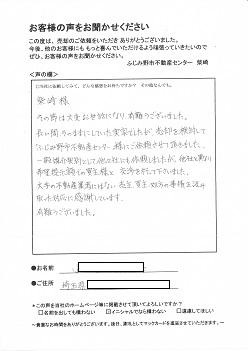 お客様の声をお聞かせください
この度は、売却のご依頼をいただきありがとうございました。
今後、他のお客様にももっと喜んでいただけるよう頑張っていきたいので
ぜひ、お客様の声をお聞かせください。
ふじみ野市不動産センター 柴崎
<声の欄>
柴崎様
この度は大変お世話になり有難うございました。
長い間そのままにしていた実家でしたが、売却を検討して
「ふじみ野市不動産センター」様にご依頼させて頂きました。
一般媒介契約として他社にも依頼しましたが、他社より
希望 買主様と交渉を行って下さいました。
大手の不動産業者にはない売主、買主双方の事情を汲み
取った対応に感謝しています。
有難うございました。
●お名前
●ご住所 埼玉県
●この声を当社のホームページ等に掲載させて頂いてよろしいですか?
□名前を出しても構わない ☑イニシャルでなら構わない □遠慮してほしい
～貴重なお時間をありがとうございます。